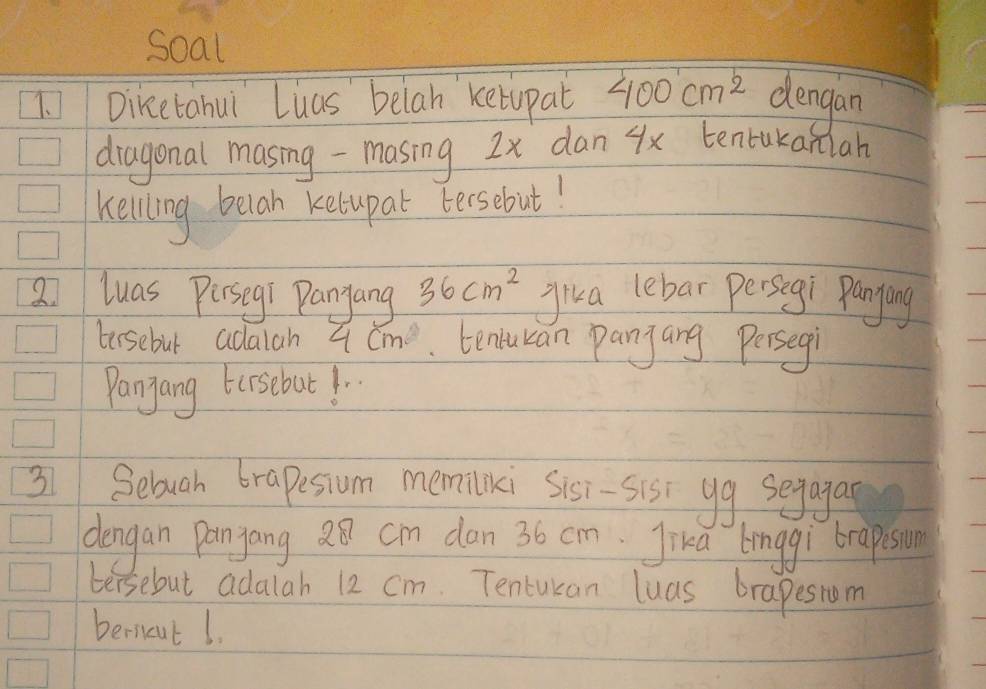 Soal
1. Diketahui Luas belah ketupat 400 cm² dengan
diagonal masing - masing 2x dan 4x tentukanlah
keliling belah ketupat tersebut!
2. luas Persegi Panjang 36 cm² jika lebar Persegi Panjang
tersebut adalah 4 cm. tentukan Panjang Persegi
Panjang tersebut !..
3 Sebuah trapesium memiliki sisi-sisi yg sejajar
dengan panjang 28 cm dan 36 cm. Jika tinggi trapesium
tersebut adalah 12 cm. Tentukan luas trapesium
berikut !.